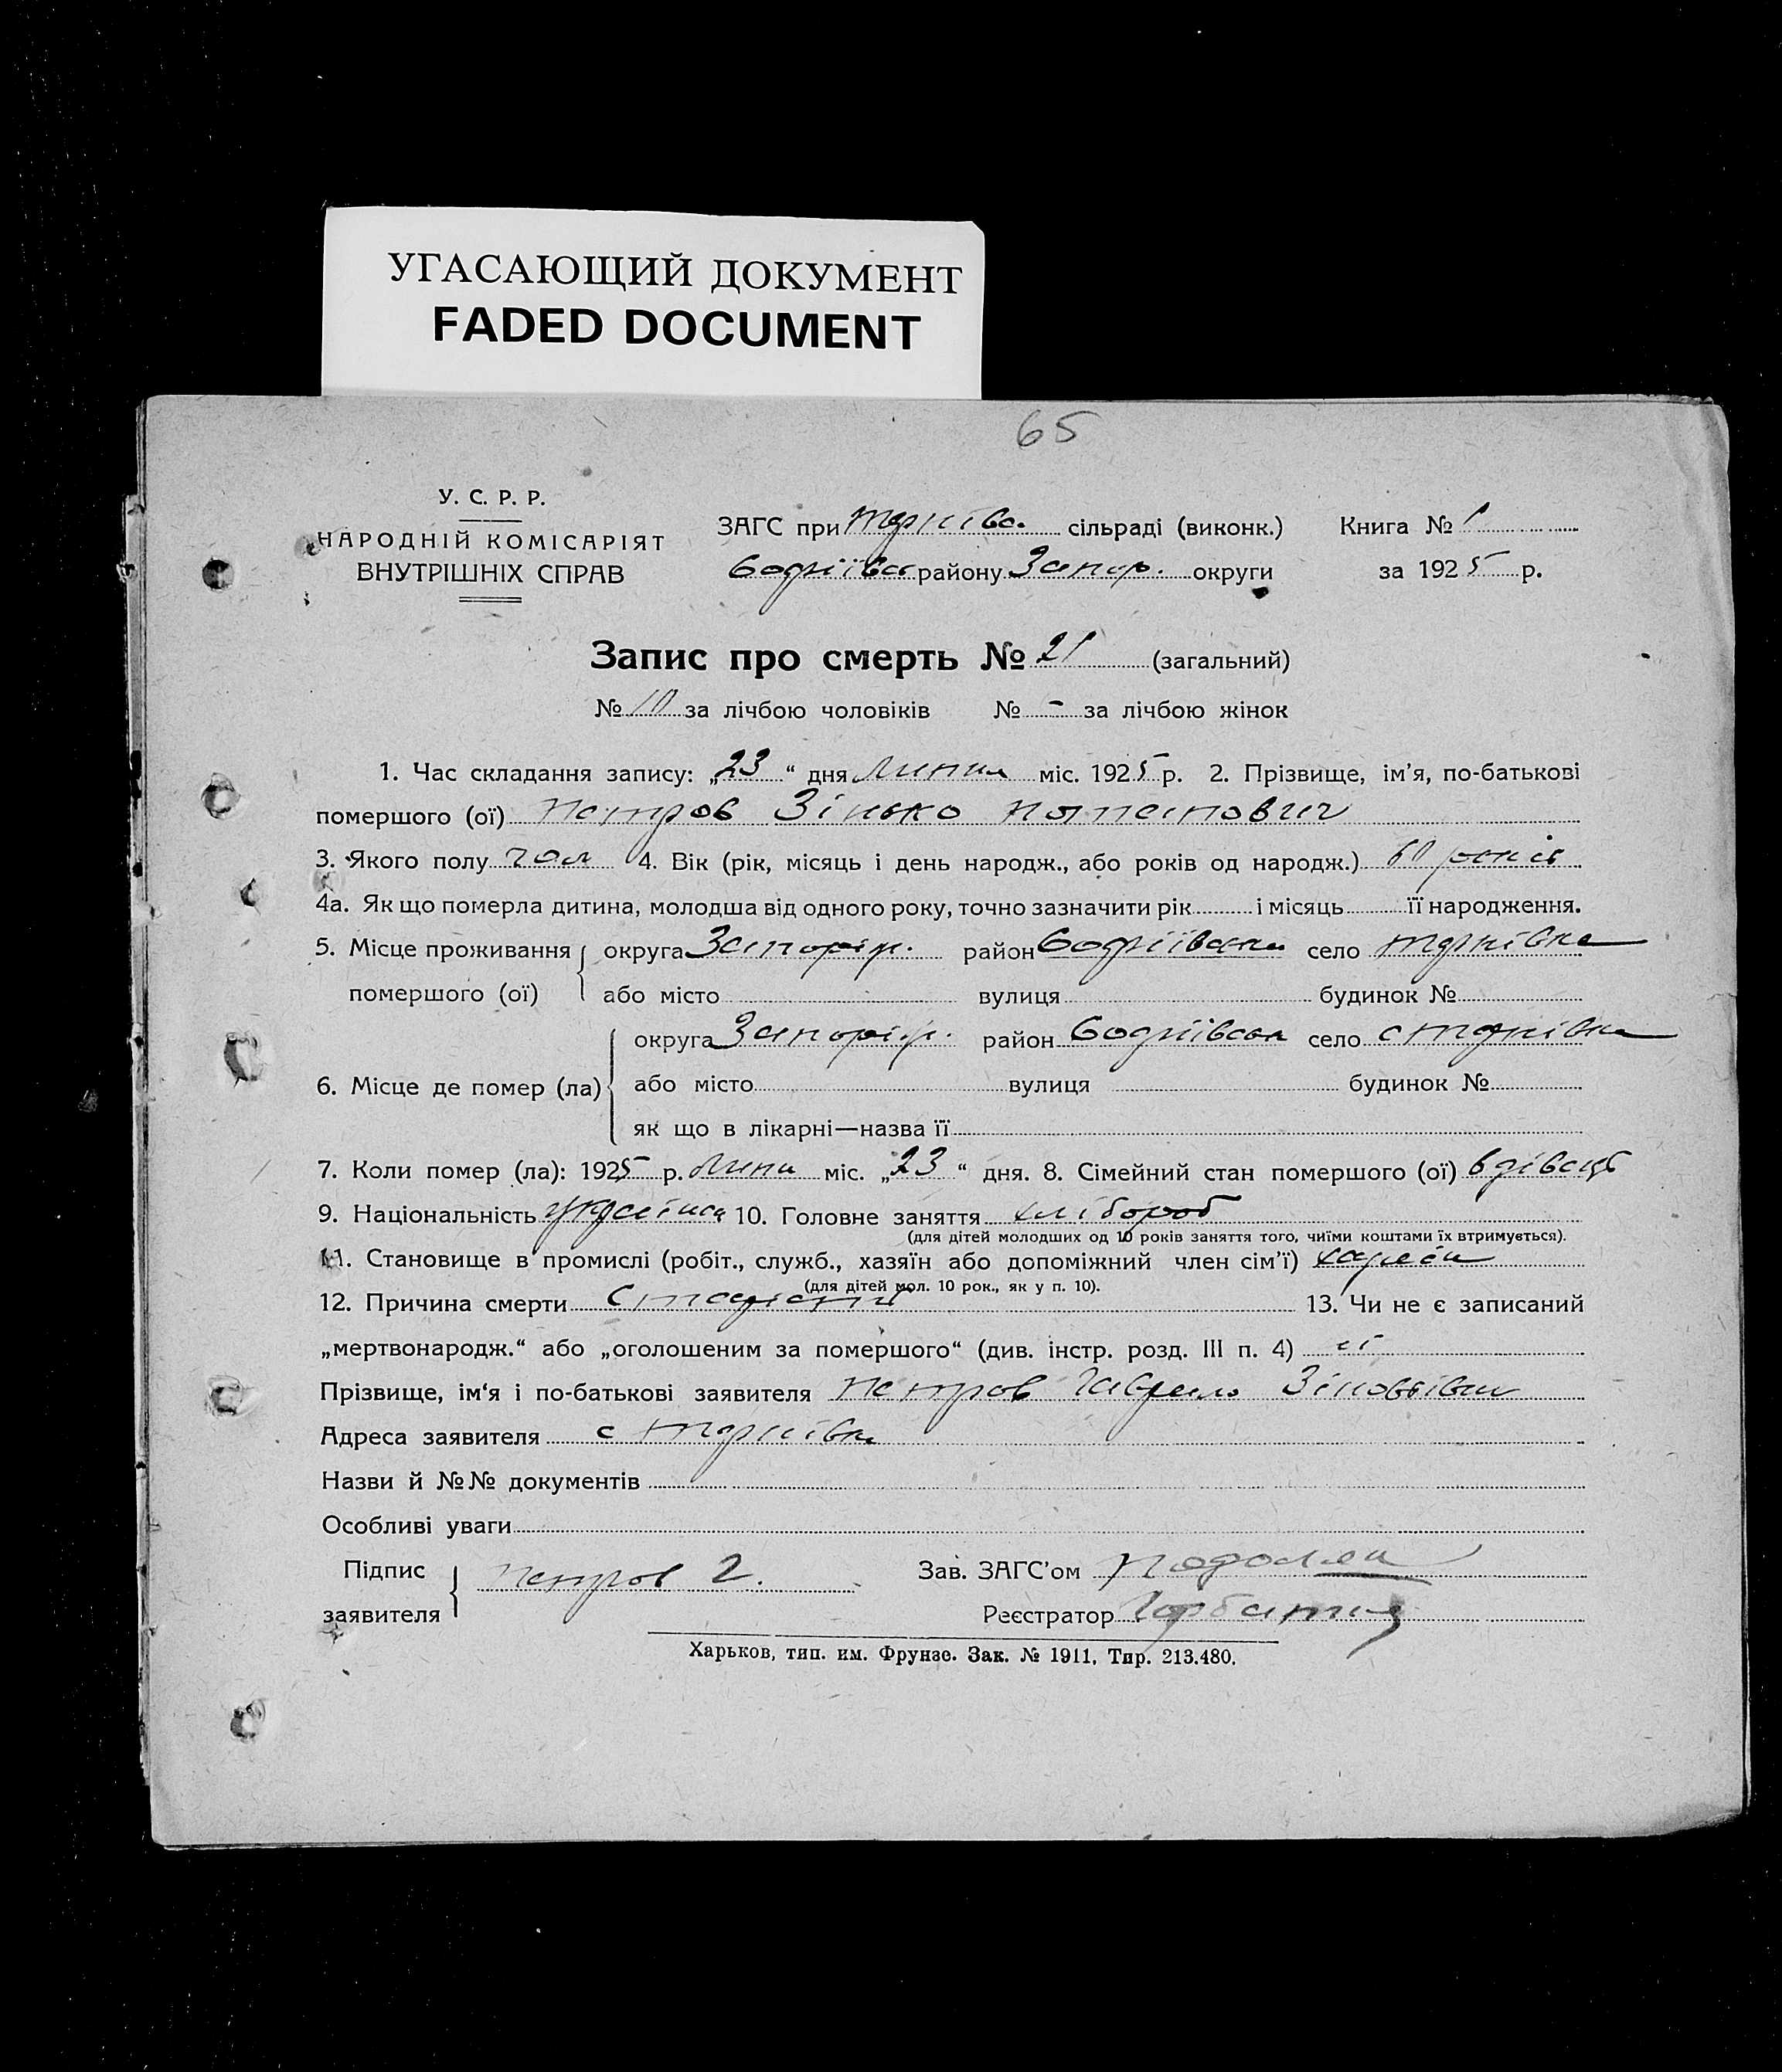 УГАСАЮЩИЙ ДОКУМЕНТ
FADED DOCUMENT
65
У. С. Р. Р.
НАРОДНІЙ КОМІСАРІЯТ
ВНУТРІШНІХ СПРАВ
ЗАГС при сільраді (виконк.) Книга № 1
району Запор. округи за 1925 р.
Запис про смерть № 21 (загальний)
№ 10 за лічбою чоловіків № - за лічбою жінок
1. Час складання запису: „23“ дня Липня міс. 1925 р. 2. Прізвище, ім’я, по-батькові
помершого (ої) Петров Зінько Потапович
3. Якого полу чол 4. Вік (рік, місяць і день народж., або років од народж.) 60 років
4а. Як що померла дитина, молодша від одного року, точно зазначити рік і місяць її народження.
5. Місце проживання округа Запоріж. район село Тернівка
помершого (ої) або місто вулиця будинок №
округа Запоріж. район село с Тернівка
6. Місце де помер (ла) або місто вулиця будинок №
як що в лікарні—назва її
7. Коли помер (ла): 1925 р. Липн міс. „23“ дня. 8. Сімейний стан помершого (ої) вдівець
9. Національність 10. Головне заняття хлібороб
(для дітей молодших од 10 років заняття того, чиїми коштами їх втримується).
11. Становище в промислі (робіт., служб., хазяїн або допоміжний член сім’ї)
(для дітей мол. 10 рок., як у п. 10).
12. Причина смерти 13. Чи не є записаний
„мертвонародж.“ або „оголошеним за помершого“ (див. інстр. розд. III п. 4)
Прізвище, ім‘я і по-батькові заявителя Петров Гаврило
Адреса заявителя с Тернівка
Назви й №№ документів
Особливі уваги
Підпис Петров Г. Зав. ЗАГС’ом
заявителя Реєстратор
Харьков, тип. им. Фрунзе. Зак. № 1911. Тир. 213.480.